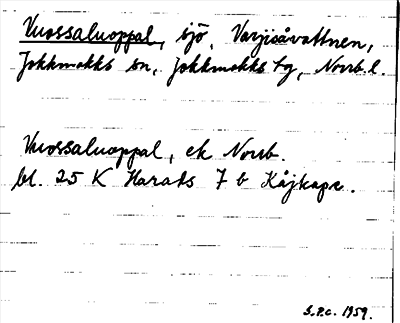 Vuossaluoppal, sjö, Varjisåvattnen,
Jokkmokks sn, Jokkmokks tg, Norrb.l.
Vuossaluoppal, ek Norrb.
bl. 25 K Harads 7 b Kåjkape.
S.P.C. 1959.